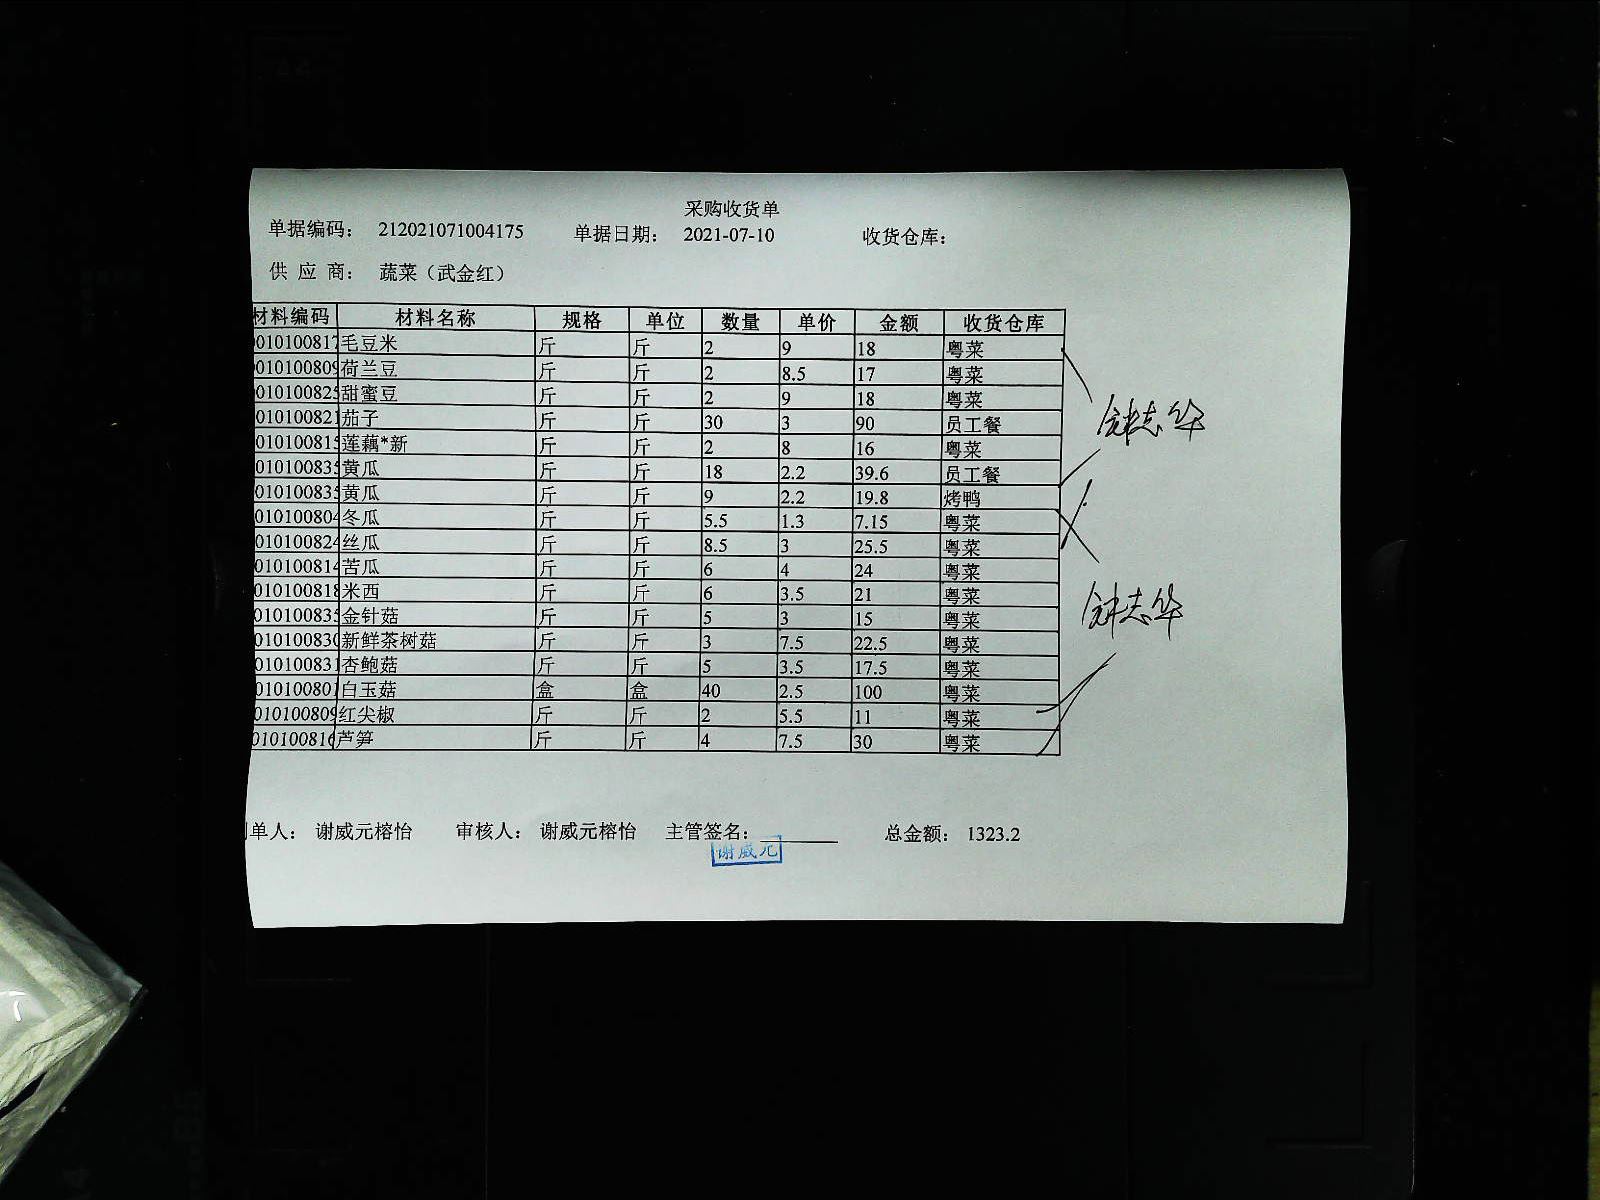 采购收货单
单据编码： 212021071004175 单据日期： 2021-07-10 收货仓库：
供 应 商： 蔬菜（武金红）
材料编码 材料名称 规格 单位 数量 单价 金额 收货仓库
010100817 毛豆米 斤 斤 2 9 18 粤菜
010100809 荷兰豆 斤 斤 2 8.5 17 粤菜
010100825 甜蜜豆 斤 斤 2 9 18 粤菜
010100821 茄子 斤 斤 30 3 90 员工餐
010100815 莲藕*新 斤 斤 2 8 16 粤菜
010100835 黄瓜 斤 斤 18 2.2 39.6 员工餐
010100835 黄瓜 斤 斤 9 2.2 19.8 烤鸭
010100804 冬瓜 斤 斤 5.5 1.3 7.15 粤菜
010100824 丝瓜 斤 斤 8.5 3 25.5 粤菜
010100814 苦瓜 斤 斤 6 4 24 粤菜
010100818 米西 斤 斤 6 3.5 21 粤菜
010100835 金针菇 斤 斤 5 3 15 粤菜
010100830 新鲜茶树菇 斤 斤 3 7.5 22.5 粤菜
010100831 杏鲍菇 斤 斤 5 3.5 17.5 粤菜
010100801 白玉菇 盒 盒 40 2.5 100 粤菜
010100809 红尖椒 斤 斤 2 5.5 11 粤菜
010100816 芦笋 斤 斤 4 7.5 30 粤菜
钟志华
钟志华
单人： 谢威元榕怡 审核人： 谢威元榕怡 主管签名： 总金额： 1323.2
谢威元